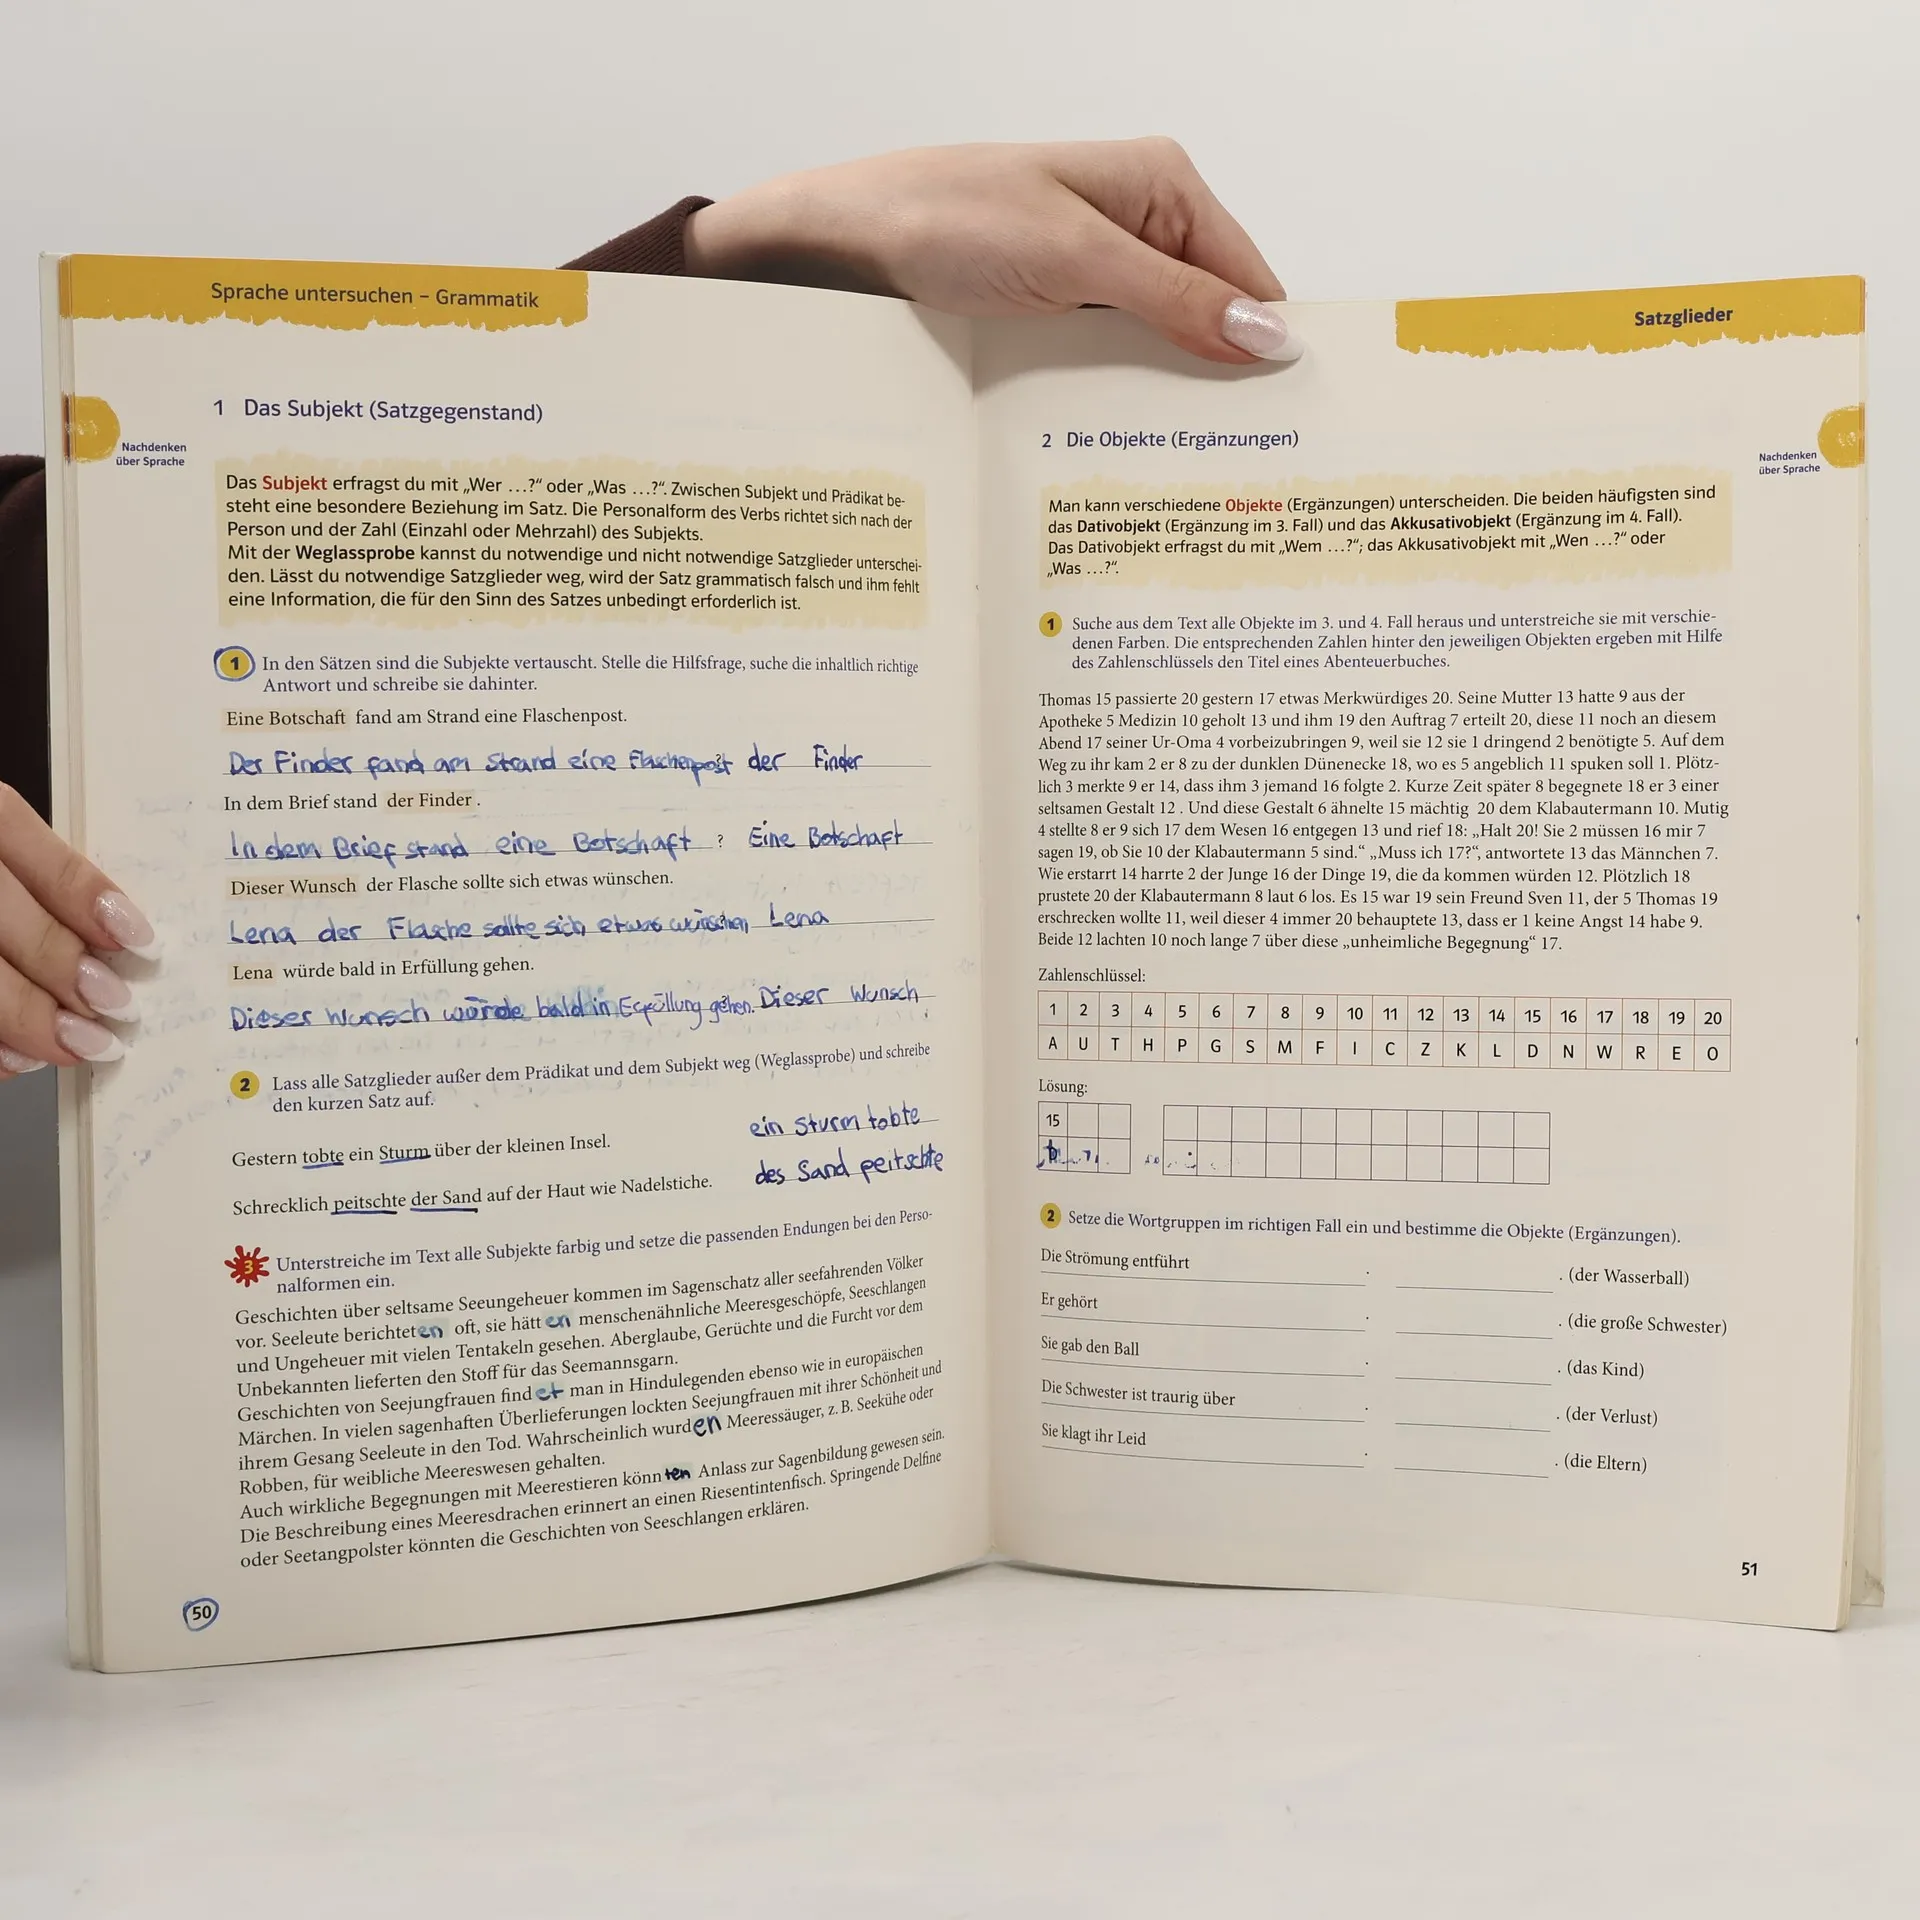 Sprache untersuchen – Grammatik
1 Das Subjekt (Satzgegenstand)
Nachdenken
über Sprache
Das Subjekt erfragst du mit „Wer …?“ oder „Was …?“. Zwischen Subjekt und Prädikat be-
steht eine besondere Beziehung im Satz. Die Personalform des Verbs richtet sich nach der
Person und der Zahl (Einzahl oder Mehrzahl) des Subjekts.
Mit der Weglassprobe kannst du notwendige und nicht notwendige Satzglieder unterschei-
den. Lässt du notwendige Satzglieder weg, wird der Satz grammatisch falsch und ihm fehlt
eine Information, die für den Sinn des Satzes unbedingt erforderlich ist.
1 In den Sätzen sind die Subjekte vertauscht. Stelle die Hilfsfrage, suche die inhaltlich richtige
Antwort und schreibe sie dahinter.
Eine Botschaft fand am Strand eine Flaschenpost.
Der Finder fand am Strand eine Flaschenpost ? der Finder
In dem Brief stand der Finder .
In dem Brief stand eine Botschaft ? Eine Botschaft
Dieser Wunsch der Flasche sollte sich etwas wünschen.
Lena der Flasche sollte sich etwas wünschen, Lena
Lena würde bald in Erfüllung gehen.
Dieser Wunsch würde bald in Erfüllung gehen. Dieser Wunsch
2 Lass alle Satzglieder außer dem Prädikat und dem Subjekt weg (Weglassprobe) und schreibe
den kurzen Satz auf.
Gestern tobte ein Sturm über der kleinen Insel. ein Sturm tobte
Schrecklich peitschte der Sand auf der Haut wie Nadelstiche. des Sand peitschte
3 Unterstreiche im Text alle Subjekte farbig und setze die passenden Endungen bei den Perso-
nalformen ein.
Geschichten über seltsame Seeungeheuer kommen im Sagenschatz aller seefahrenden Völker
vor. Seeleute berichteten oft, sie hätt en menschenähnliche Meeresgeschöpfe, Seeschlangen
und Ungeheuer mit vielen Tentakeln gesehen. Aberglaube, Gerüchte und die Furcht vor dem
Unbekannten lieferten den Stoff für das Seemannsgarn.
Geschichten von Seejungfrauen find et man in Hindulegenden ebenso wie in europäischen
Märchen. In vielen sagenhaften Überlieferungen lockten Seejungfrauen mit ihrer Schönheit und
ihrem Gesang Seeleute in den Tod. Wahrscheinlich wurden Meeressäuger, z. B. Seekühe oder
Robben, für weibliche Meereswesen gehalten.
Auch wirkliche Begegnungen mit Meerestieren könn ten Anlass zur Sagenbildung gewesen sein.
Die Beschreibung eines Meeresdrachen erinnert an einen Riesentintenfisch. Springende Delfine
oder Seetangpolster könnten die Geschichten von Seeschlangen erklären.
50
Satzglieder
2 Die Objekte (Ergänzungen)
Nachdenken
über Sprache
Man kann verschiedene Objekte (Ergänzungen) unterscheiden. Die beiden häufigsten sind
das Dativobjekt (Ergänzung im 3. Fall) und das Akkusativobjekt (Ergänzung im 4. Fall).
Das Dativobjekt erfragst du mit „Wem …?“; das Akkusativobjekt mit „Wen …?“ oder
„Was …?“.
1 Suche aus dem Text alle Objekte im 3. und 4. Fall heraus und unterstreiche sie mit verschie-
denen Farben. Die entsprechenden Zahlen hinter den jeweiligen Objekten ergeben mit Hilfe
des Zahlenschlüssels den Titel eines Abenteuerbuches.
Thomas 15 passierte 20 gestern 17 etwas Merkwürdiges 20. Seine Mutter 13 hatte 9 aus der
Apotheke 5 Medizin 10 geholt 13 und ihm 19 den Auftrag 7 erteilt 20, diese 11 noch an diesem
Abend 17 seiner Ur-Oma 4 vorbeizubringen 9, weil sie 12 sie 1 dringend 2 benötigte 5. Auf dem
Weg zu ihr kam 2 er 8 zu der dunklen Dünenecke 18, wo es 5 angeblich 11 spuken soll 1. Plötz-
lich 3 merkte 9 er 14, dass ihm 3 jemand 16 folgte 2. Kurze Zeit später 8 begegnete 18 er 3 einer
seltsamen Gestalt 12 . Und diese Gestalt 6 ähnelte 15 mächtig 20 dem Klabautermann 10. Mutig
4 stellte 8 er 9 sich 17 dem Wesen 16 entgegen 13 und rief 18: „Halt 20! Sie 2 müssen 16 mir 7
sagen 19, ob Sie 10 der Klabautermann 5 sind.“ „Muss ich 17?“, antwortete 13 das Männchen 7.
Wie erstarrt 14 harrte 2 der Junge 16 der Dinge 19, die da kommen würden 12. Plötzlich 18
prustete 20 der Klabautermann 8 laut 6 los. Es 15 war 19 sein Freund Sven 11, der 5 Thomas 19
erschrecken wollte 11, weil dieser 4 immer 20 behauptete 13, dass er 1 keine Angst 14 habe 9.
Beide 12 lachten 10 noch lange 7 über diese „unheimliche Begegnung“ 17.
Zahlenschlüssel:
1 2 3 4 5 6 7 8 9 10 11 12 13 14 15 16 17 18 19 20
A U T H P G S M F I C Z K L D N W R E O
Lösung:
15
2 Setze die Wortgruppen im richtigen Fall ein und bestimme die Objekte (Ergänzungen).
Die Strömung entführt . . (der Wasserball)
Er gehört . . (die große Schwester)
Sie gab den Ball . . (das Kind)
Die Schwester ist traurig über . . (der Verlust)
Sie klagt ihr Leid . . (die Eltern)
51